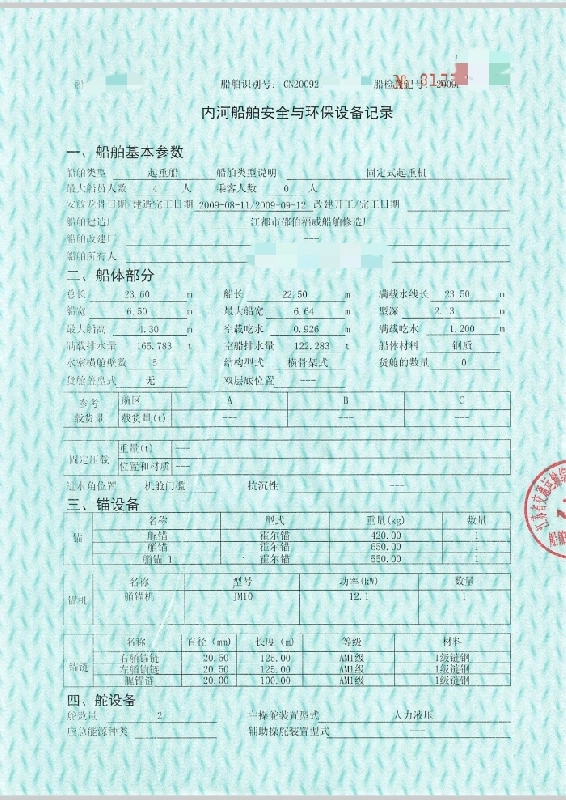 船舶识别号: CN20092
内河船舶安全与环保设备记录
一、船舶基本参数
船舶类型 起重船 船舶类型说明 固定式起重机
最大船员人数 人 乘客人数 0 人
安放龙骨日期/建造完工日期 2009-08-11/2009-09-12 改建开工/完工日期
船舶建造厂 江都市邵伯福威船舶修造厂
船舶改建厂 ---
船舶所有人
二、船体部分
总长 23.60 m 船长 22.50 m 满载水线长 23.50 m
船宽 6.30 m 最大船宽 6.64 m 型深 2.3 m
最大船高 4.30 m 空载吃水 0.926 m 满载吃水 1.200 m
满载排水量 165.783 t 空船排水量 122.283 t 船体材料 钢质
水密横舱壁数 5 结构型式 横骨架式 货舱的数量 0
货舱盖型式 无 双层底位置 ---
参考载货量 航区 A B C
载货量(t) --- --- ---
固定压载 重量(t) ---
位置和材质 ---
进水角位置 机舱门槛 抗沉性 ---
三、锚设备
锚 名称 型式 重量(kg) 数量
艏锚 霍尔锚 420.00 1
艏锚 霍尔锚 650.00 1
艉锚 1 霍尔锚 550.00 1
锚机 名称 型号 功率(kW) 数量
艏锚机 JM10 12.1 1
锚链 名称 直径 (mm) 长度 (m) 等级 材料
右艏锚链 20.50 125.00 AM1级 1级链钢
左艏锚链 20.50 125.00 AM1级 1级链钢
艉锚链 20.00 100.00 AM1级 1级链钢
四、舵设备
舵数量 2 主操舵装置型式 人力液压
应急能源种类 辅助操舵装置型式 ---